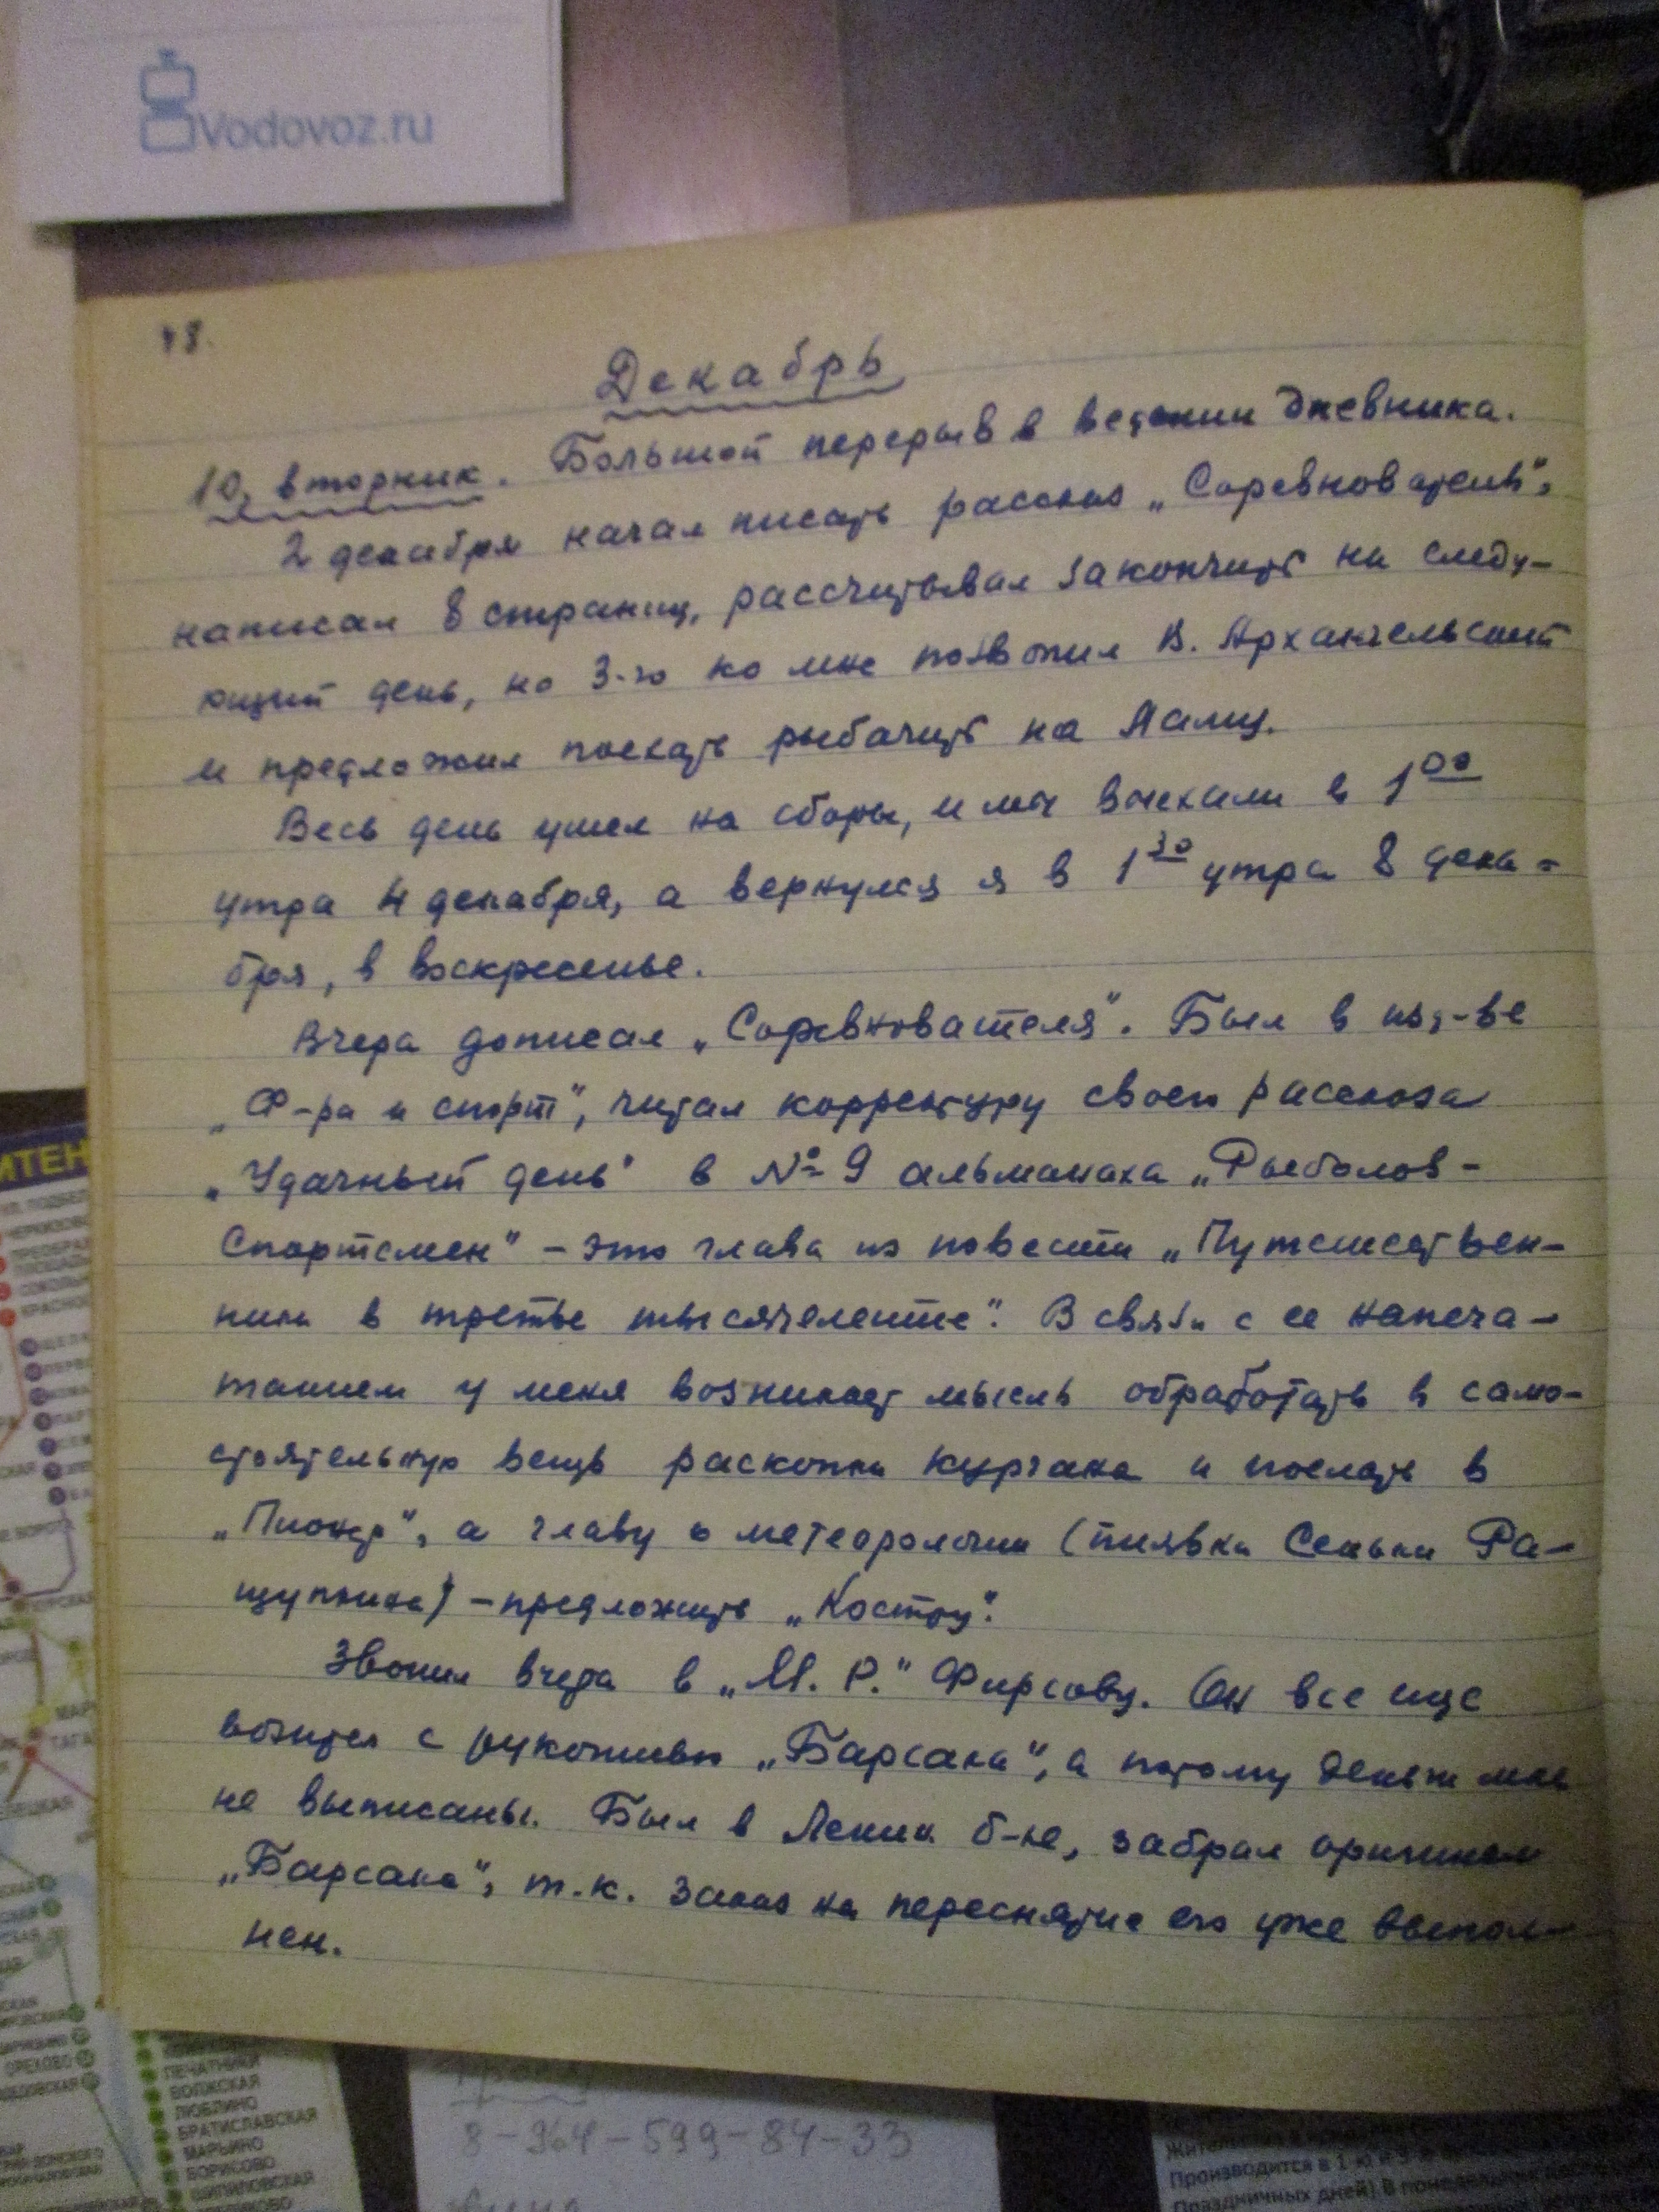 Vodovoz.ru
48.
Декабрь
10, вторник. Большой перерыв в ведении дневника.
2 декабря начал писать рассказ „Соревнователь",
написал 8 страниц, рассчитывал закончить на следу-
ющий день, но 3-го ко мне позвонил В. Архангельский
и предложил поехать рыбачить на Ламу.
Весь день ушел на сборы, и мы выехали в 1 00
утра 4 декабря, а вернулся я в 1 30 утра 8 дека-
бря, в воскресенье.
Вчера дописал „Соревнователя". Был в изд-ве
„Ф-ра и спорт", читал корректуру своего рассказа
„Удачный день" в № 9 альманаха „Рыболов-
Спортсмен" – это глава из повести „Путешествен-
ники в третье тысячелетие". В связи с ее напеча-
танием у меня возникает мысль обработать в само-
стоятельную вещь раскопки кургана и послать в
„Пионер", а главу о метеорологии (пиявки Сеньки Ра-
щупкина) – предложить „Костру".
Звонил вчера в „М. Р." Фирсову. Он все еще
возится с рукописью „Барсака", а потому деньги мне
не выписаны. Был в Ленин. б-ке, забрал оригинал
„Барсака", т.к. заказ на переснятие его уже выпол-
нен.
ИТЕН
МАР
ТАГА
ОРЕХОВО
ПЕЧАТНИКИ
ВОЛЖСКАЯ
ЛЮБЛИНО
БРАТИСЛАВСКАЯ
МАРЬИНО
БОРИСОВО
ШИПИЛОВСКАЯ
8-964-599-84-33
Производится в 1-ю и 3-ю
Праздничных дней) В понедельник